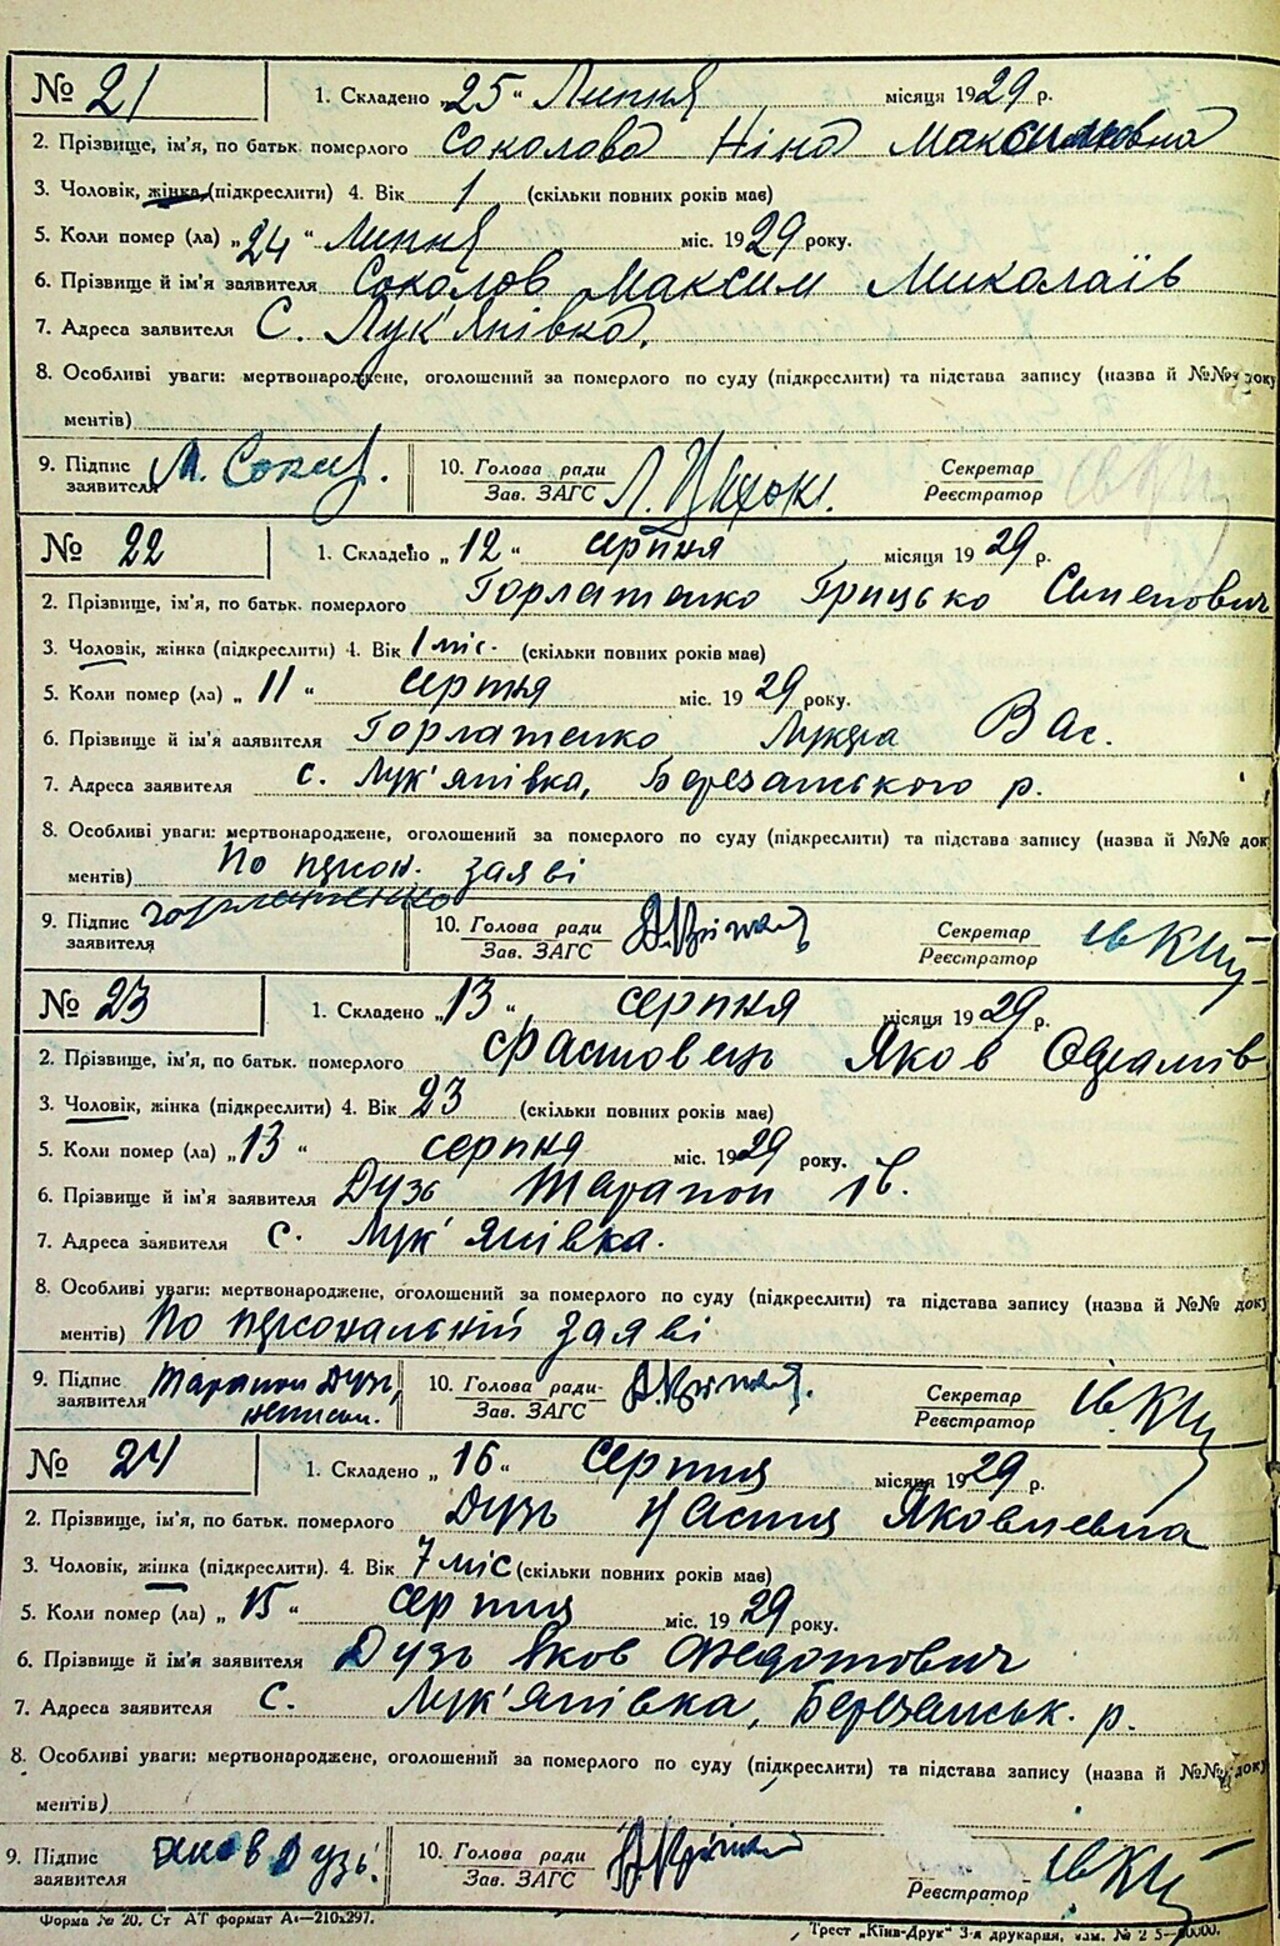 № 21 1. Складено „25“ Липня місяця 1929 р.
2. Прізвище, ім'я, по батьк. померлого Соколова Ніна Максимовна
3. Чоловік, жінка (підкреслити) 4. Вік 1 (скільки повних років має)
5. Коли помер (ла) „24“ Липня міс. 1929 року.
6. Прізвище й ім'я заявителя Соколов Максим Миколаїв
7. Адреса заявителя С. Лук'янівка.
8. Особливі уваги: мертвонароджене, оголошений за померлого по суду (підкреслити) та підстава запису (назва й №№ доку
ментів)
9. Підпис заявителя М. Сокол. 10. Голова ради Секретар
Зав. ЗАГС Реєстратор
№ 22 1. Складено „12“ серпня місяця 1929 р.
2. Прізвище, ім'я, по батьк. померлого Горлатенко Грицько Семенович
3. Чоловік, жінка (підкреслити) 4. Вік 1 міс. (скільки повних років має)
5. Коли помер (ла) „11“ серпня міс. 1929 року.
6. Прізвище й ім'я заявителя Горлатенко Вас.
7. Адреса заявителя с. Лук'янівка, Березанського р.
8. Особливі уваги: мертвонароджене, оголошений за померлого по суду (підкреслити) та підстава запису (назва й №№ док
ментів) По персон. заяві
9. Підпис заявителя Горлатенко 10. Голова ради Секретар
Зав. ЗАГС Реєстратор
№ 23 1. Складено „13“ серпня місяця 1929 р.
2. Прізвище, ім'я, по батьк. померлого Фастовець Яков
3. Чоловік, жінка (підкреслити) 4. Вік 23 (скільки повних років має)
5. Коли помер (ла) „13“ серпня міс. 1929 року.
6. Прізвище й ім'я заявителя Дузь Тарапон Ів.
7. Адреса заявителя с. Лук'янівка.
8. Особливі уваги: мертвонароджене, оголошений за померлого по суду (підкреслити) та підстава запису (назва й №№ доку
ментів) По персональній заяві
9. Підпис заявителя Тарапон Дузь, 10. Голова ради Секретар
Зав. ЗАГС Реєстратор
№ 24 1. Складено „16“ серпня місяця 1929 р.
2. Прізвище, ім'я, по батьк. померлого Дузь Настя Яковлевна
3. Чоловік, жінка (підкреслити). 4. Вік 7 міс (скільки повних років має)
5. Коли помер (ла) „15“ серпня міс. 1929 року.
6. Прізвище й ім'я заявителя Дузь Яков Федотович
7. Адреса заявителя с. Лук'янівка, Березанськ. р.
8. Особливі уваги: мертвонароджене, оголошений за померлого по суду (підкреслити) та підстава запису (назва й №№ доку
ментів)
9. Підпис заявителя Яков Дузь. 10. Голова ради
Зав. ЗАГС Реєстратор
Форма № 20. Ст АТ формат А₄—210х297. Трест „Київ-Друк“ 3-я друкарня, зам. №